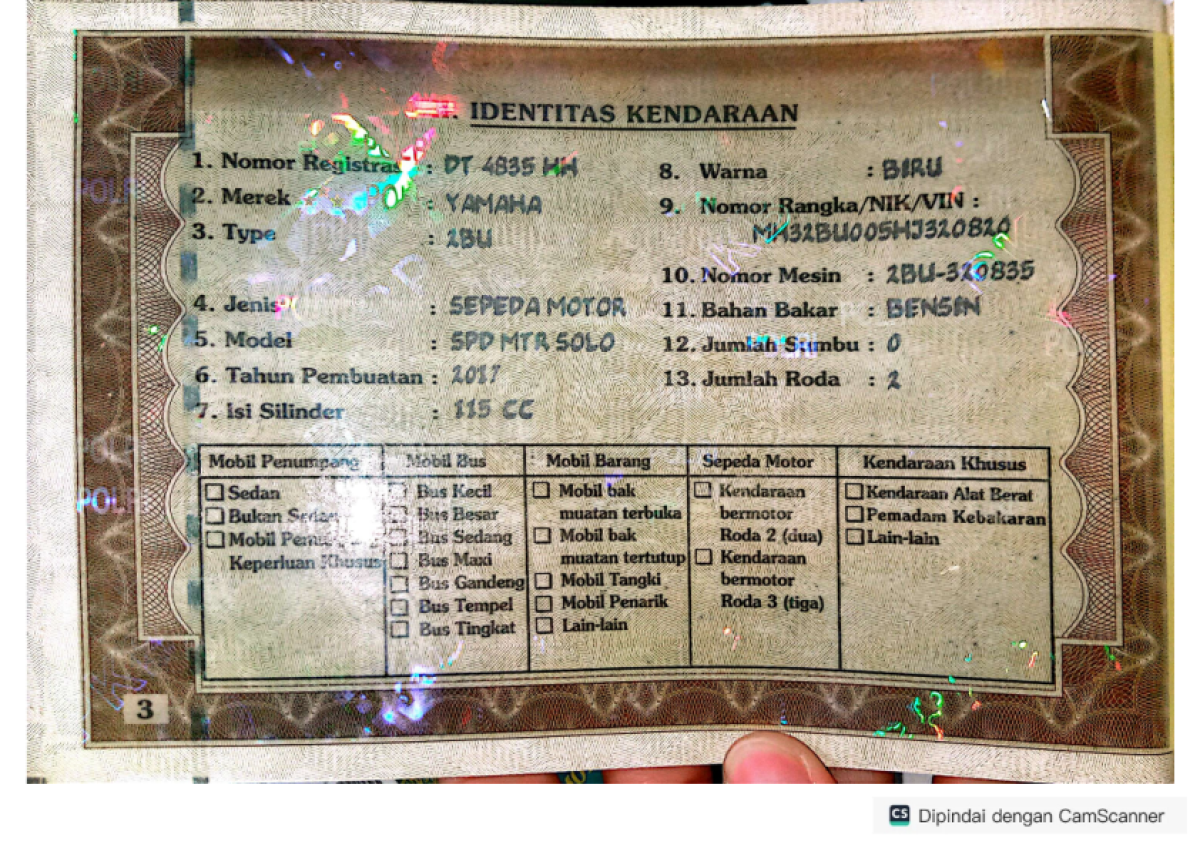 IDENTITAS KENDARAAN
1. Nomor Registrasi : DT 4835 HH
2. Merek : YAMAHA
3. Type : 2BU
4. Jenis : SEPEDA MOTOR
5. Model : SPD MTR SOLO
6. Tahun Pembuatan : 2017
7. Isi Silinder : 115 CC
8. Warna : BIRU
9. Nomor Rangka/NIK/VIN :
MH32BU005HJ320820
10. Nomor Mesin : 2BU-320835
11. Bahan Bakar : BENSIN
12. Jumlah Sumbu : 0
13. Jumlah Roda : 2
Mobil Penumpang
Sedan
Bukan Sedan
Mobil
Keperluan Khusus
Mobil Bus
Bus Kecil
Bus Besar
Bus Sedang
Bus Maxi
Bus Gandeng
Bus Tempel
Bus Tingkat
Mobil Barang
Mobil bak
muatan terbuka
Mobil bak
muatan tertutup
Mobil Tangki
Mobil Penarik
Lain-lain
Sepeda Motor
Kendaraan
bermotor
Roda 2 (dua)
Kendaraan
bermotor
Roda 3 (tiga)
Kendaraan Khusus
Kendaraan Alat Berat
Pemadam Kebakaran
Lain-lain
3
CS Dipindai dengan CamScanner